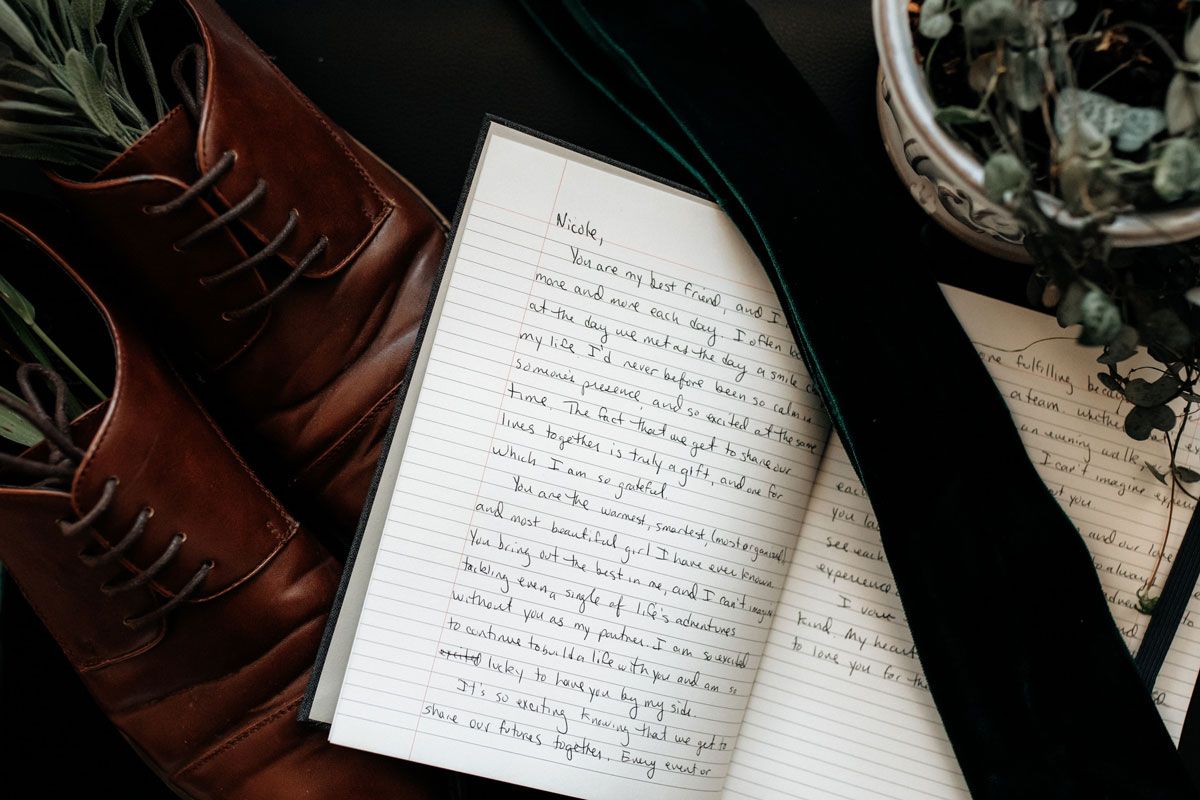 Nicole,
You are my best friend, and I
more and more each day. I often
at the day we met as the day a smile
my life. I'd never before been so calm in
someone's presence, and so excited at the same
time. The fact that we get to share our
lives together is truly a gift, and one for
which I am so grateful.
You are the warmest, smartest, (most organized),
and most beautiful girl I have ever known.
You bring out the best in me, and I can't imagine
tackling even a single of life's adventures
without you as my partner. I am so excited
to continue to build a life with you and am so
excited lucky to have you by my side.
It's so exciting knowing that we get to
share our futures together. Every event or
fulfilling
a team. whether
an evening walk,
I can't imagine
you.
and our
to always
each
you
see each
experience
I vow
kind. My heart
to love you for the